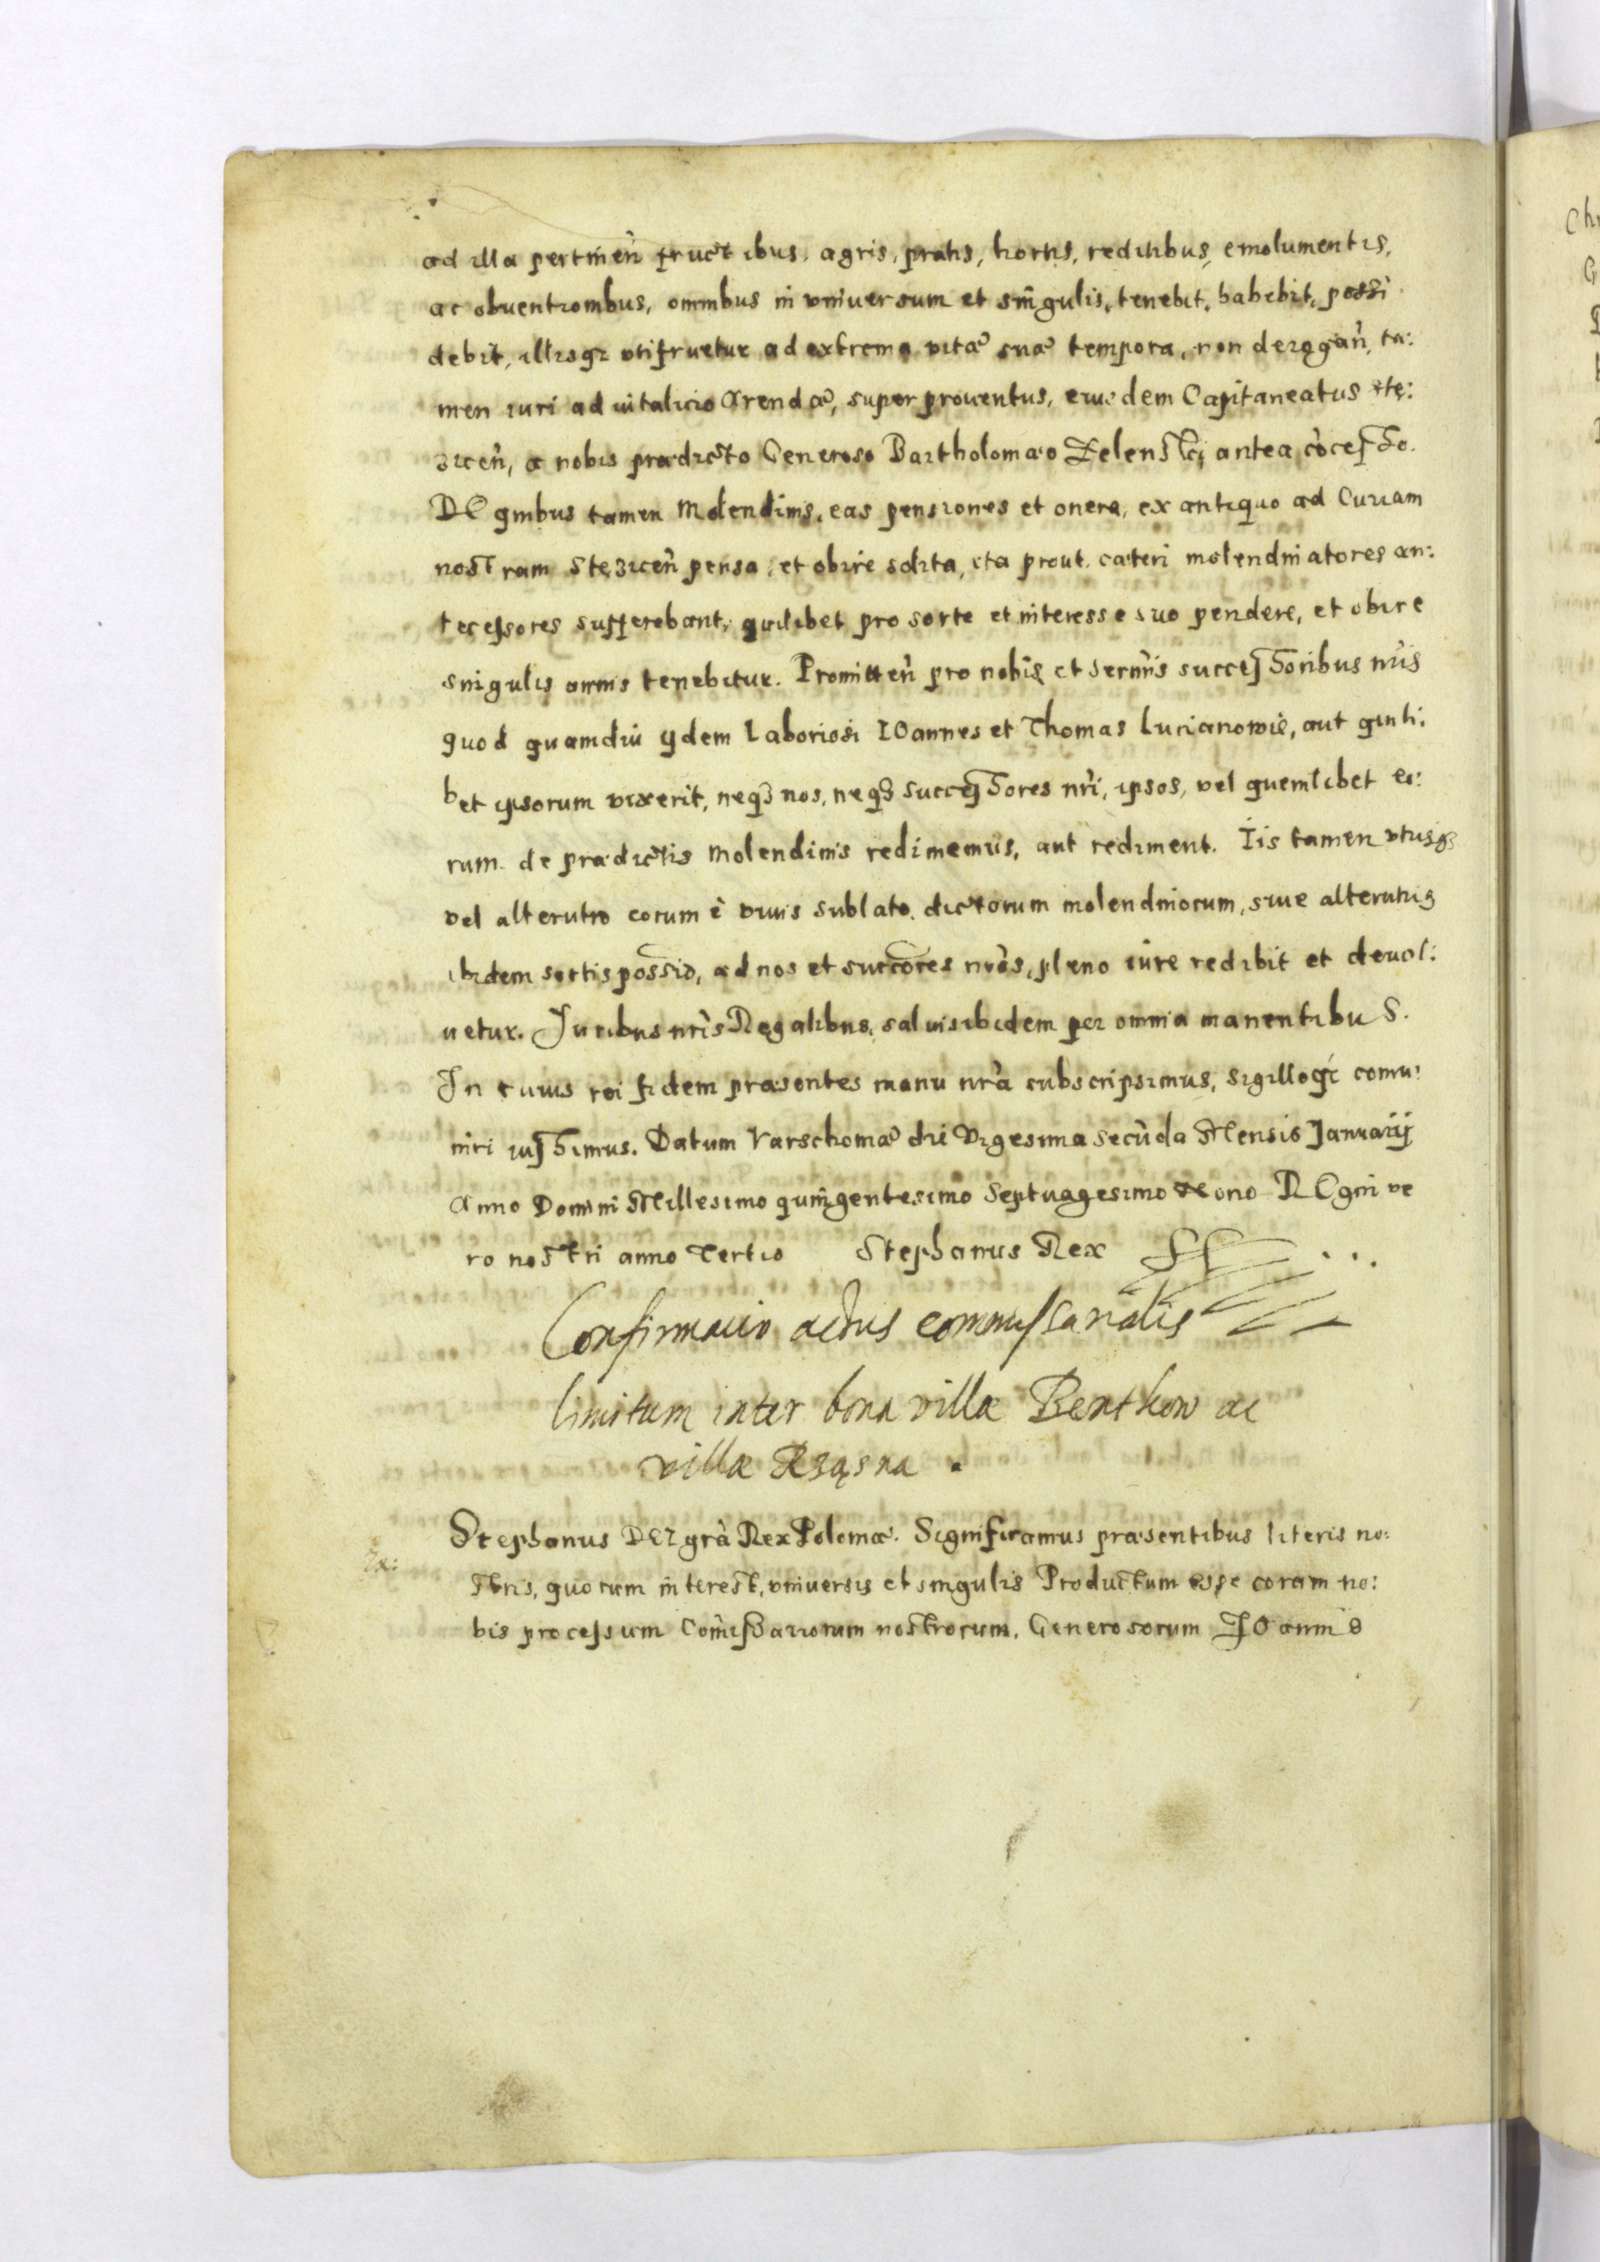 ad illa pertineñ fructibus, agris, pratis, hortis, reditibus, emolumentis,
ac obuentionibus, omnibus in vniuersum et singulis, tenebit, habebit, possi
debit, illisq3 vtifruetur ad extrema vitæ suæ tempora, non derogañ, ta:
men iuri aduitalicio Arendæ, super prouentus, eiusdem Capitaneatus Stę:
zicen̄, a nobis prædicto Generoso Bartholomæo Zelenski antea cōcesso.
DE quibus tamen Molendinis, eas pensiones et onera, ex antiquo ad Curiam
nostram Stęzicen̄ pensa, et obire solita, ita prout cæteri molendinatores an:
tecessores sufferebant, quilibet pro sorte et interesse suo pendere, et obire
singulis annis tenebitur. Promitteñ pro nobis et Sermis successoribus nr̃is
quod quamdiu ijdem Laboriosi IOannes et Thomas Lucianowie, aut quili:
bet ipsorum vixerit, neq3 nos, neq3 successores nr̃i, ipsos, vel quemlibet eo:
rum de prædictis Molendinis redimemus, aut rediment. Iis tamen vtrisq3
vel alterutro eorum è viuis sublato, dictorum molendinorum, siue alterutrius
ibidem sortis possio, ad nos et succores nr̃os, pleno iure redibit et deuol:
uetur. Iuribus nr̃is Regalibus, saluis ibidem per omnia manentibus.
In cuius rei fidem præsentes manu nr̃a subscripsimus, sigilloq3 comu:
niri iussimus. Datum Varschouiæ die Vigesima secūda Mensis Januarij
Anno Domini Millesimo quingentesimo Septuagesimo Nono REgni ve
ro nostri anno Tertio Stephanus Rex
Confirmacio actus commissarialis
limitum inter bona villæ Benthow ac
villæ Rząsna.
Stephanus DEI grã Rex Poloniæ. Significamus præsentibus literis no:
stris, quorum interest, vniuersis et singulis Productum esse coram no:
bis processum Com̄issariorum nostrorum, Generosorum IOannis